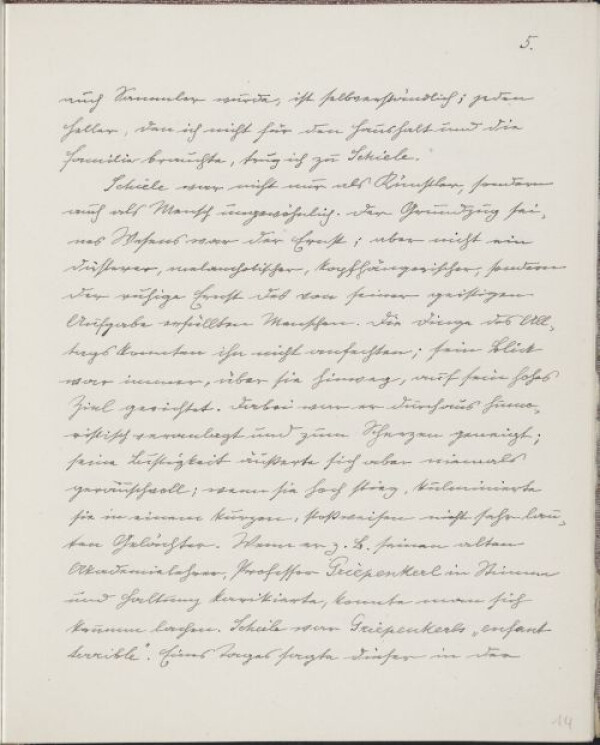 5.
auch Sammler wurde, ist selbverständlich; jeden
Heller, den ich nicht für den Haushalt und die
Familie brauchte, trug ich zu Schiele.
Schiele war nicht nur als Künstler, sondern
auch als Mensch ungewöhnlich. Der Grundzug sei-
nes Wesens war der Ernst; aber nicht ein
düsterer, melancholischer, kopfhängerischer, sondern
der ruhige Ernst des von seiner geistigen
Aufgabe erfüllten Menschen. Die Dinge des All-
tags konnten ihn nicht anfechten; sein Blick
war immer, über sie hinweg, auf sein hohes
Ziel gerichtet. Dabei war er durchaus humo-
ristisch veranlagt und zum Scherzen geneigt;
seine Lustigkeit äußerte sich aber niemals
geräuschvoll; wenn sie hoch stieg, kulminierte
sie in einem kurzen, stoßweisen nicht sehr lau-
ten Gelächter. Wenn er z. B. seinen alten
Akademielehrer, Professor Griepenkerl in Stimme
und Haltung karikierte, konnte man sich
krumm lachen. Schiele war Griepenkerls „enfant
terrible“. Eines Tages sagte dieser in der
14